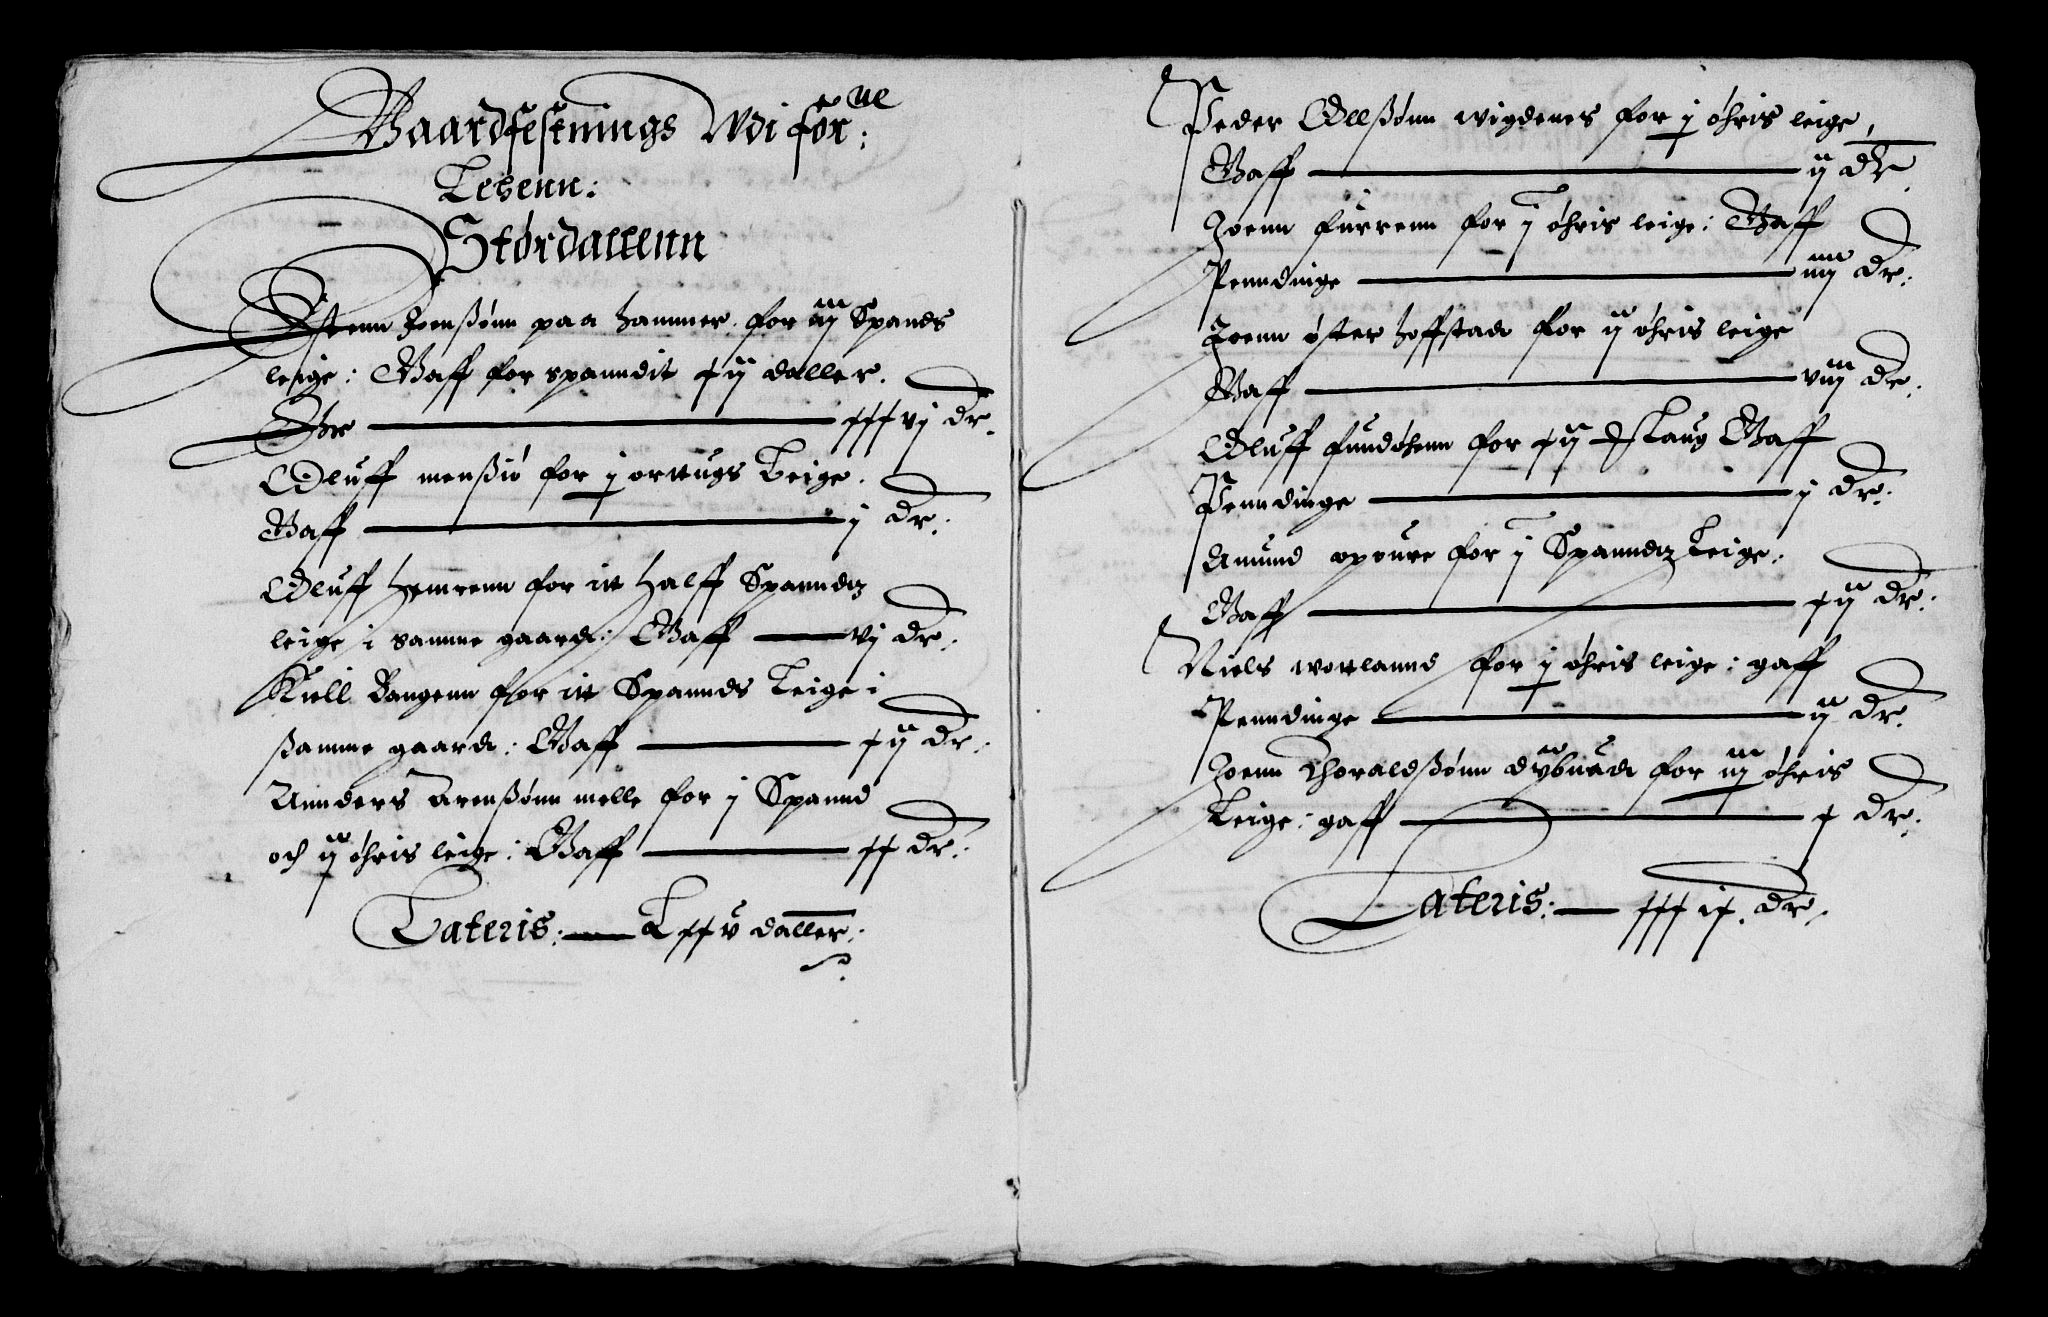 Gaardfestnings Udi for:ne
Lehenn:
Størdallenn
Estenn Joenßønn paa hammer. for iij Spands
leige: Gaff for spanndit xij daller.
Er — xxxvj dr.
Oluff menßiö for j ortugs Leige.
Gaff — j dr.
Oluff hemrenn for itt halff Spanndz
leige i samme gaard: Gaff — vj dr.
Kiell Bangenn for itt Spannds Leige i
ßamme gaard: Gaff — xij dr.
Annders Arenßønn melle for j Spannd
och ij øhris leige: Gaff — xx dr.
Lateris: — Lxxv daller.
Peder Ollßønn wigdenes for j øhris leige,
Gaff — ij dr
Joenn furrenn for j øhris leige: Gaff
Penndinge — iiij dr.
Joenn øster hoffstad for ij øhris leige
Gaff — viij dr.
Oluff fundøhenn for xij slaug Gaff
Penndinge — j dr.
Amund opoure for j Spanndz Leige.
Gaff — xij dr.
Niels worlannd for j øhris leige: gaff
Penndinge — ij dr.
Joenn Thoraldßønn dybuad for iij øhris
Leige: gaff — x dr.
Lateris: — xxxix. dr.